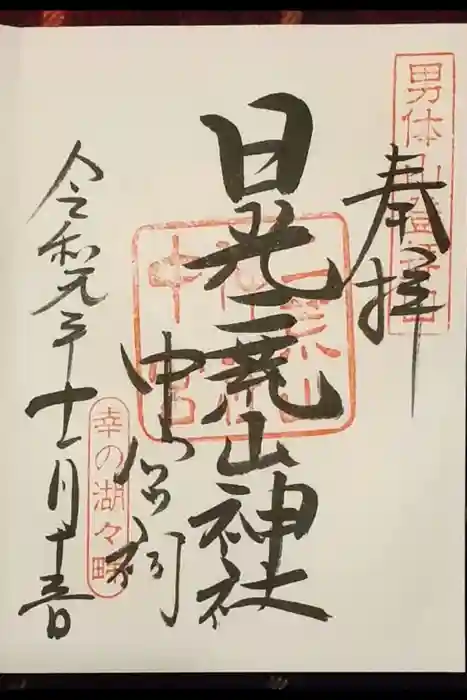 男体山
奉拝
日光二荒山神社
中宮祠
二荒山
神社
中宮
幸の湖々畔
令和元年十一月十五日